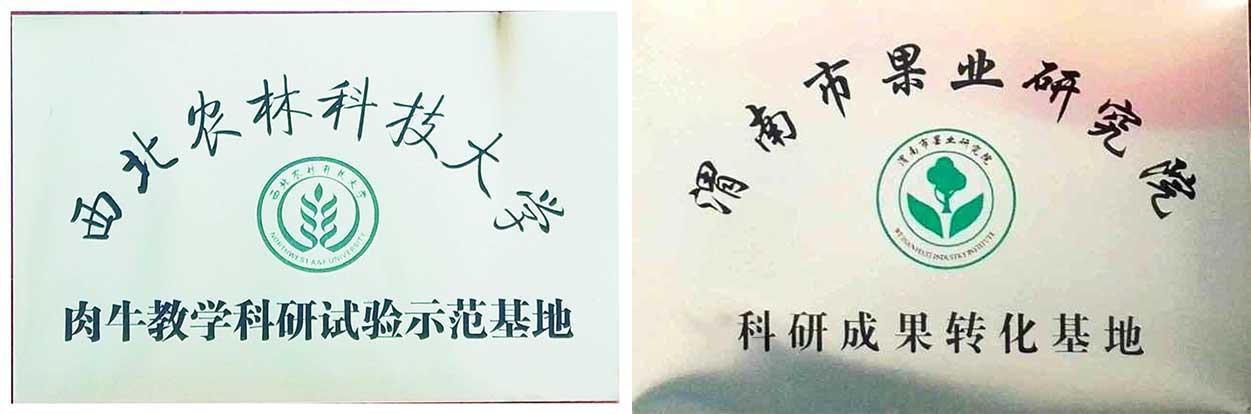 西北农林科技大学
西北农林科技大学
NORTHWEST A&F UNIVERSITY
肉牛教学科研试验示范基地
渭南市果业研究院
渭南市果业研究院
WEINAN FRUIT INDUSTRY INSTITUTE
科研成果转化基地